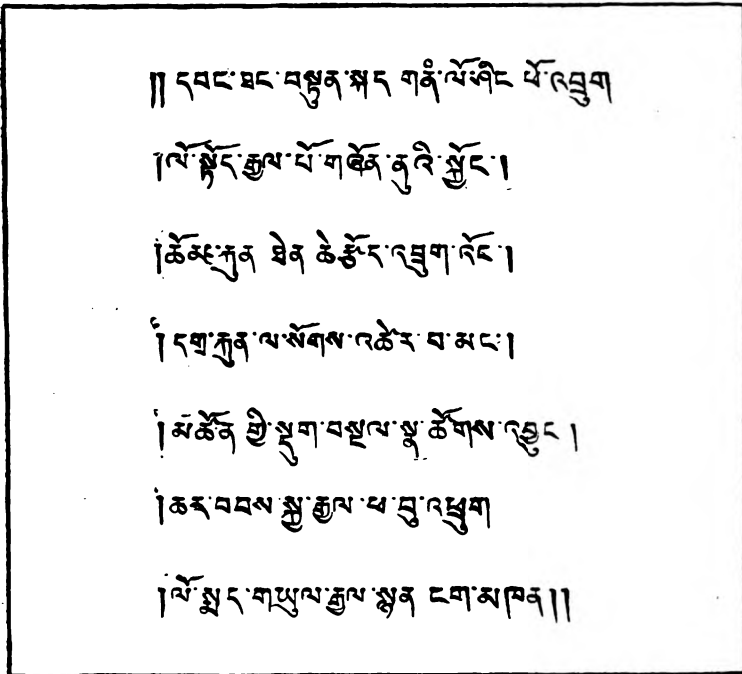 ༎ དབང་ཐང་བསྟུན་སྐད གནཾ་ལོ་ཤིང ཕོ་འབྲུག
།ལོ་སྟོད་རྒྱལ་པོ་གཞོན་ནུའི་སྐྱོང་།
།ཆོམ་རྐུན ཐེན ཆེ་རྩོད་འཁྲུག་འོང་།
། དགྲ་རྐུན་ལ་སོགས་འཚེར་བ་མང་།
། མཚོན་གྱི་སྡུག་བསྔལ་སྣ་ཚོགས་འབྱུང །
།ཆར་བབས་སྐྱ་རྒྱལ་ཕ་བུ་འཕྲུག
།ལོ་སྨད་གཡུལ་རྒྱལ་སྙན ངག་མཁན།།